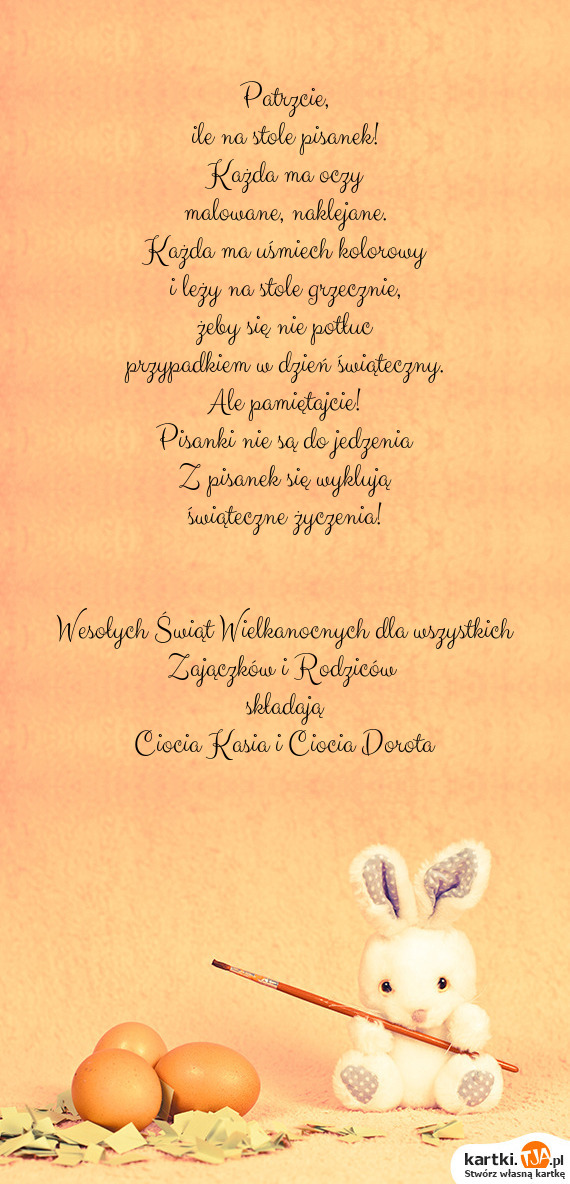 Patrzcie,
ile na stole pisanek!
Każda ma oczy
malowane, naklejane.
Każda ma uśmiech kolorowy
i leży na stole grzecznie,
żeby się nie potłuc
przypadkiem w dzień świąteczny.
Ale pamiętajcie!
Pisanki nie są do jedzenia
Z pisanek się wyklują
świąteczne życzenia!
Wesołych Świąt Wielkanocnych dla wszystkich
Zajączków i Rodziców
składają
Ciocia Kasia i Ciocia Dorota
kartki.TJA.pl
Stwórz własną kartkę